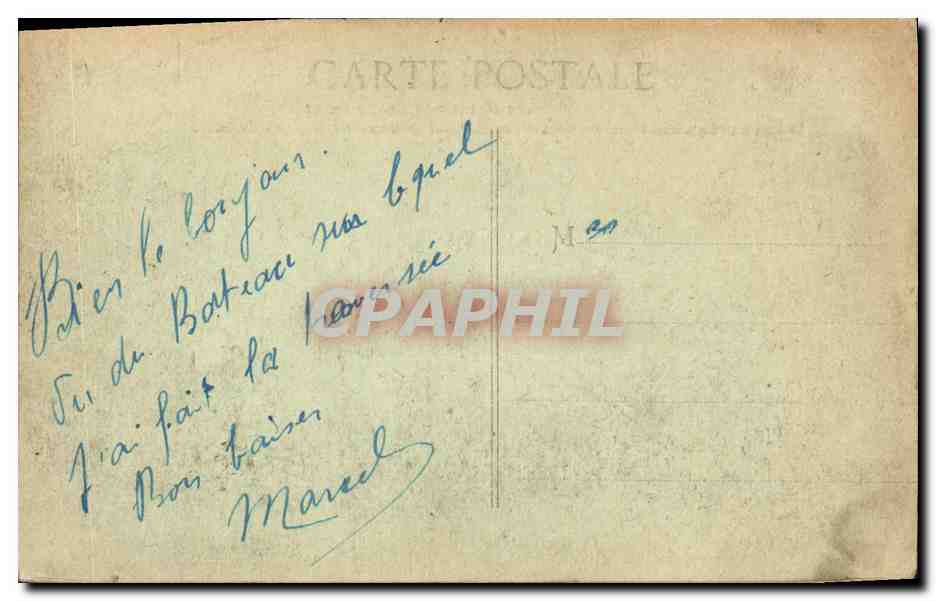 CARTE POSTALE
Bien le bonjour.
Vu du Bateau sur lequel
J'ai fait la traversée
Bons baisers
Marcel
M
CPAPHIL